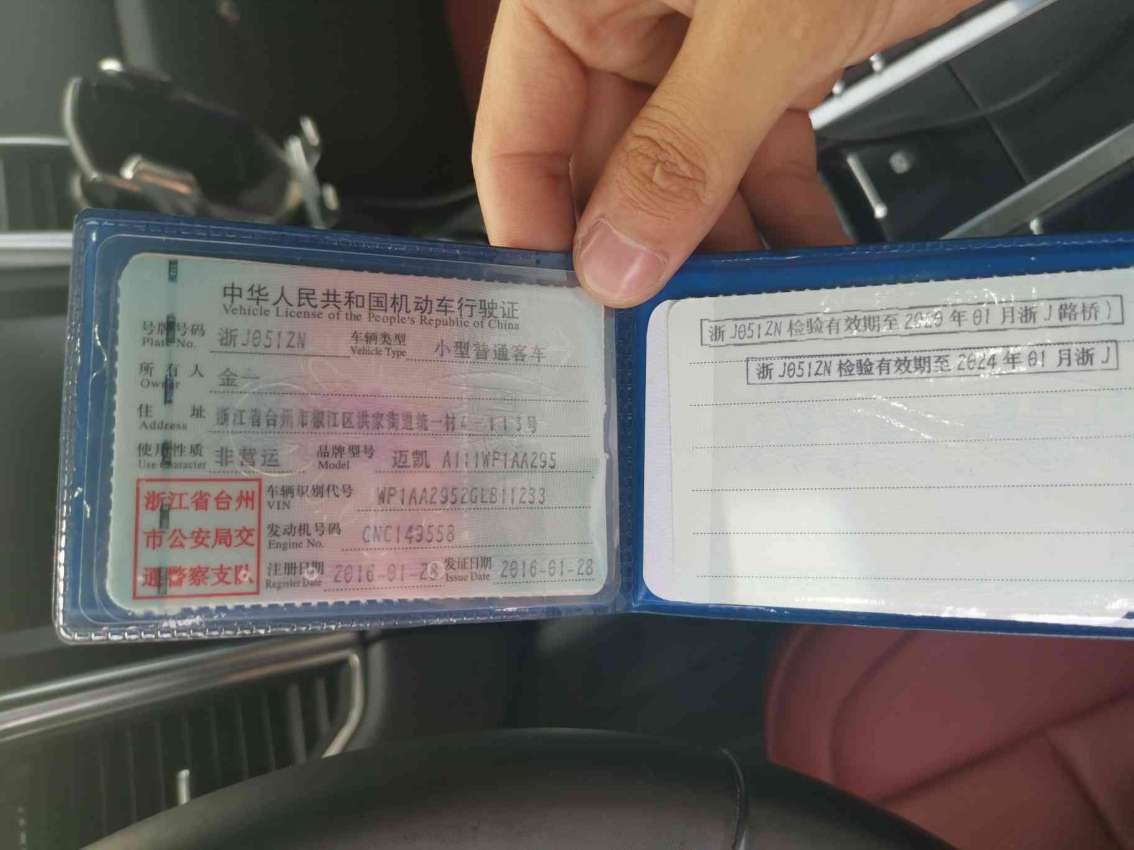 中华人民共和国机动车行驶证
Vehicle License of the People's Republic of China
号牌号码 浙J051ZN 车辆类型 小型普通客车
Plate No. Vehicle Type
所有人 金一
Owner
住址 浙江省台州市椒江区洪家街道统一村4-113号
Address
使用性质 非营运 品牌型号 迈凯 A111WP1AA295
Use Character Model
浙江省台州
市公安局交
通警察支队
车辆识别代号 WP1AA2952GLB11233
VIN
发动机号码 CNC143558
Engine No.
注册日期 2016-01-28 发证日期 2016-01-28
Register Date Issue Date
浙J051ZN检验有效期至2020年01月浙J(路桥)
浙J051ZN检验有效期至2024年01月浙J